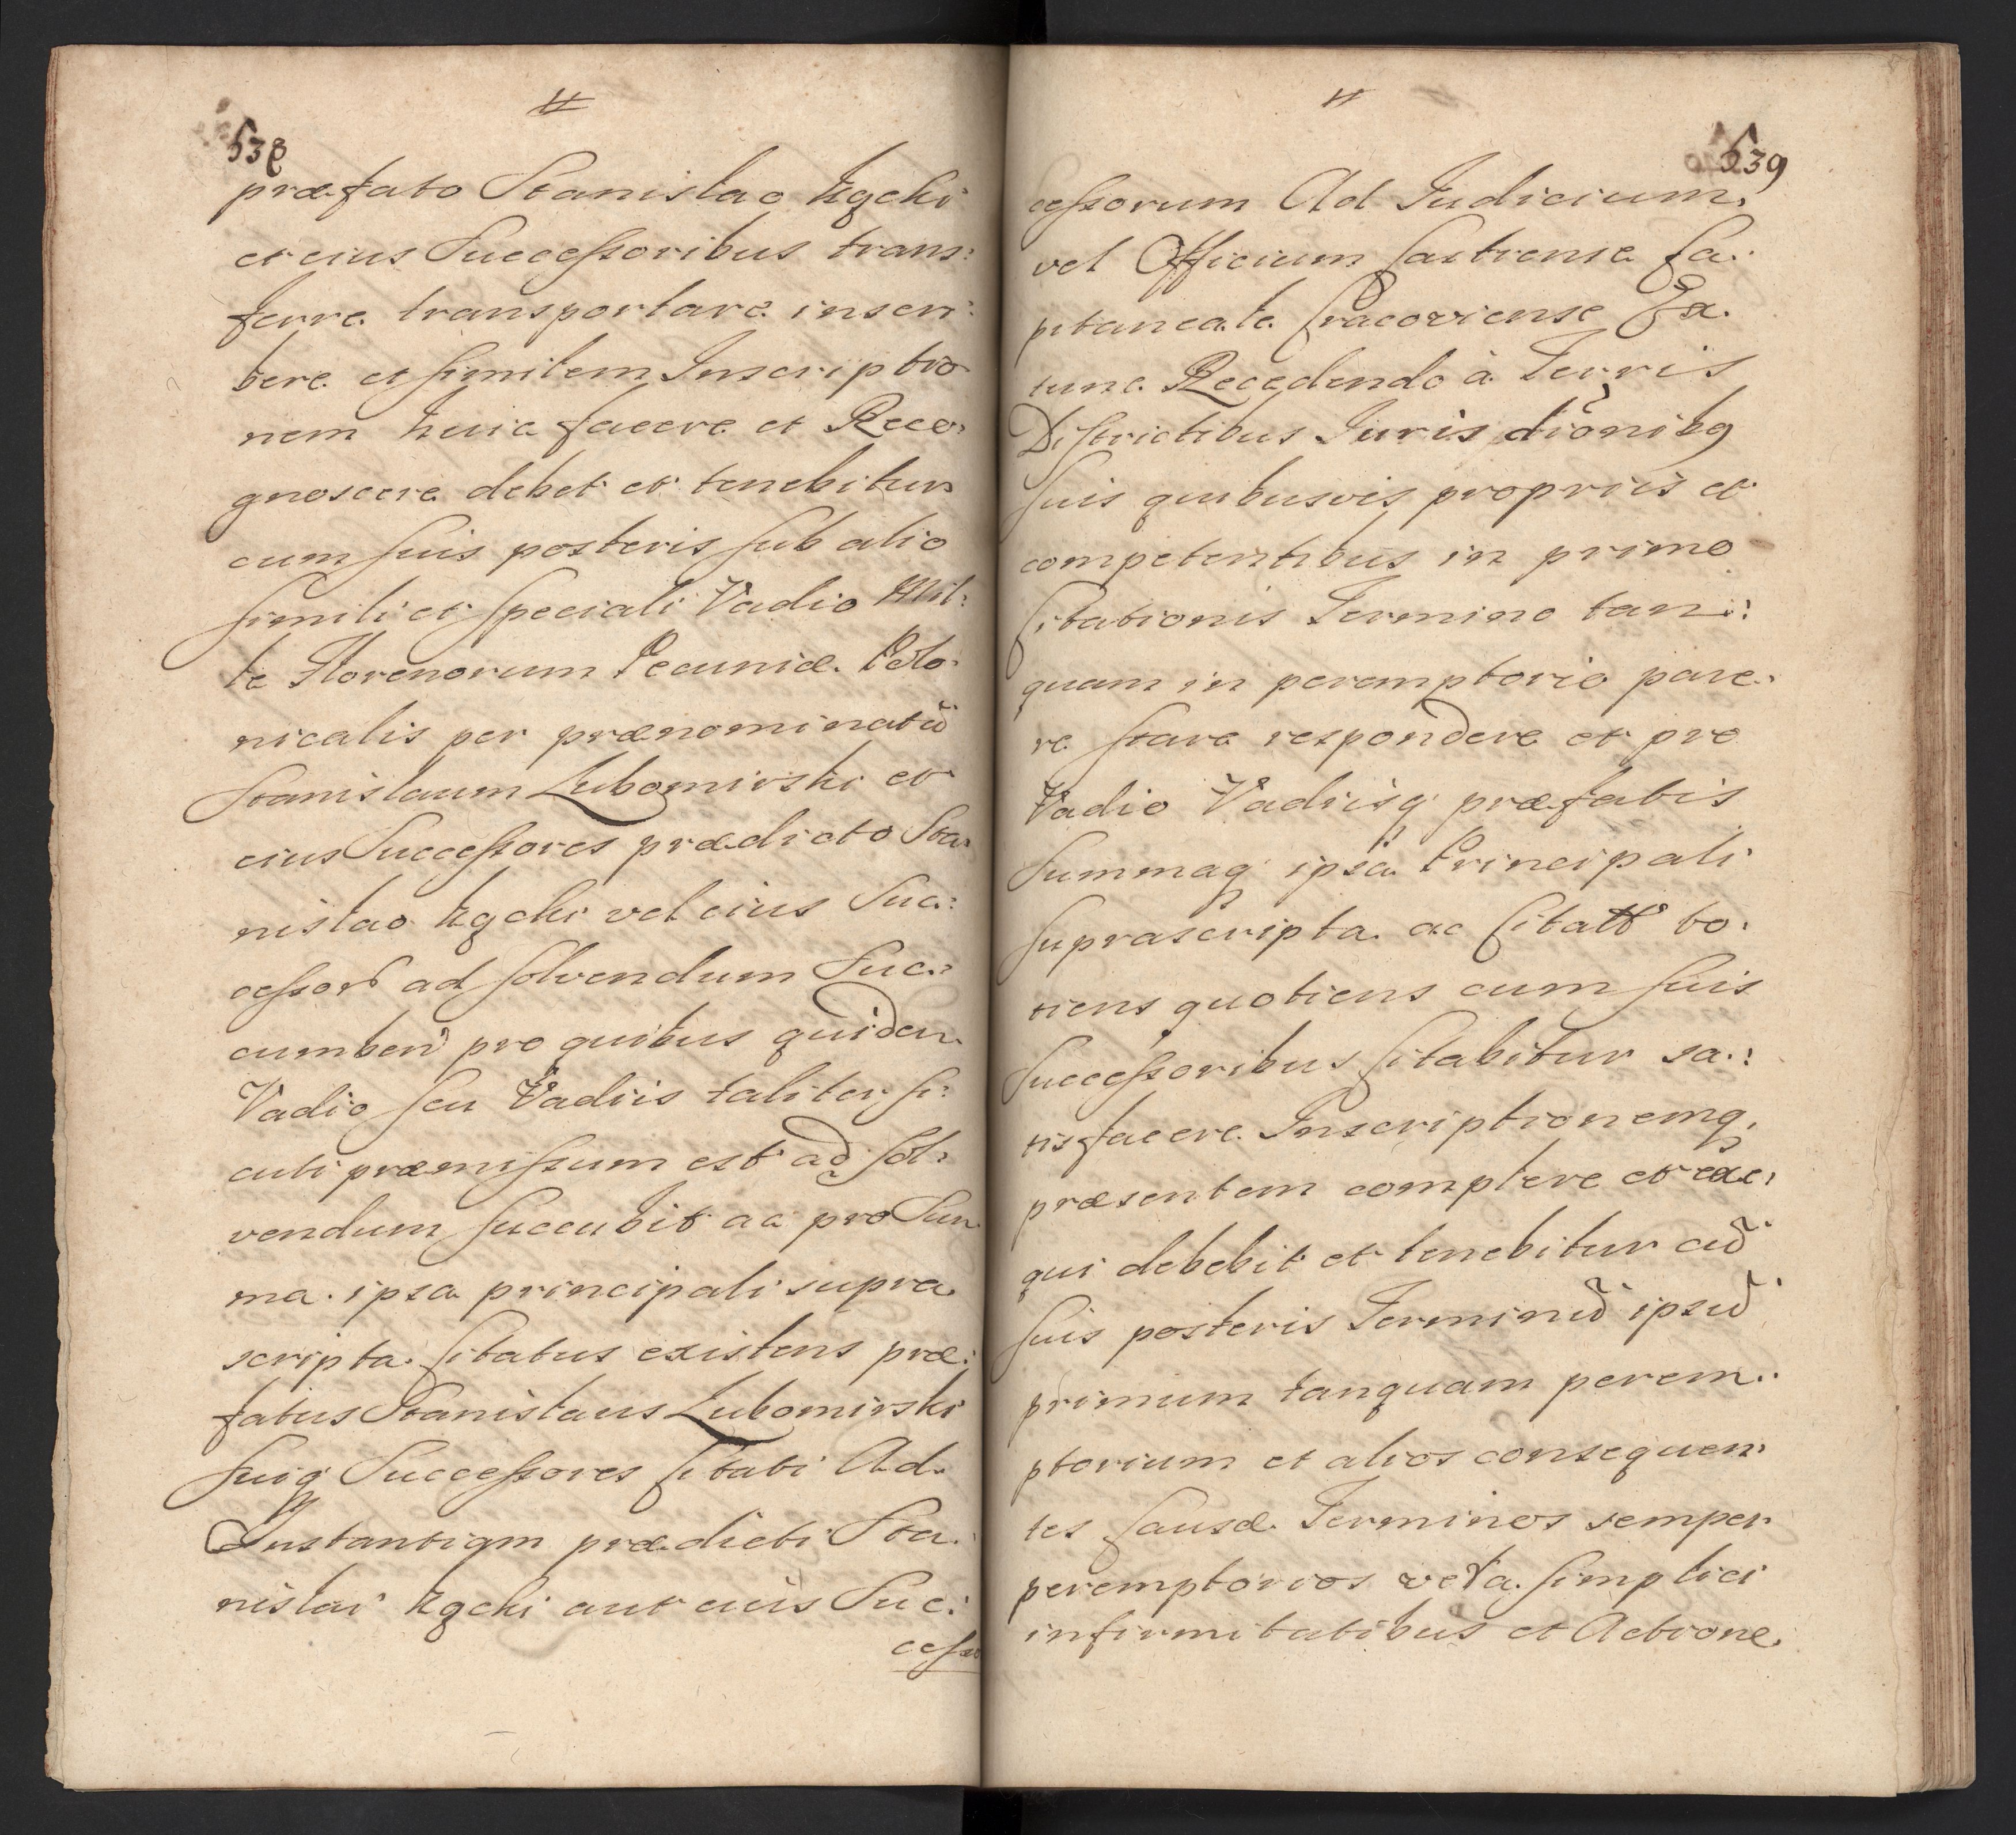 538
præfato Stanislao Ugcki
et eius Successoribus trans:
ferre transportare inscri:
bere et similem Inscriptio
nem huic facere et Reco:
gnoscere debet et tenebitur
cum suis posteris sub alio
simili et speciali Vadio Mil:
le Florenorum Pecuniæ Polo:
nicalis per prænominatū
Stanislaum Lubomirski et
eius Successores prædicto Sta:
nislao Ugcki vel eius Suc:
cessor ad solvendum Suc:
cumben pro quibus quidem
Vadio seu Vadiis taliter si:
cuti præmissum est ad sol:
vendum succubit ac pro Sum
ma ipsa principali supra
scripta Citatus existens præ:
fatus Stanislaus Lubomirski
suiq Successores Citati Ad
Instantiam prædicti Sta:
nislai Ugcki aut eius Suc:
cesso
539
cessorum Ad Judicium
vel Officium Castrense Ca:
pitaneale Cracoviense Ex
tunc Recedendo à Terris
Districtibus Juris dĩonibq
suis quibusvis propriis et
competentibus in primo
Citationis Termino tan:
quam in peremptorio pare:
re stare respondere et pro
Vadio Vadiisq præfatis
Summaq ipsa Principali
suprascripta ac Citatt to:
tiens quotiens cum suis
Successoribus Citabitur sa:
tisfacere Inscriptionemq
præsentem complere et exe:
qui debebit et tenebitur cū
suis posteris Terminū ipsū
primum tanquam perem:
ptorium et alios consequen:
tes Causæ Terminos semper
peremptorios vera simplici
infirmitatibus et Actione